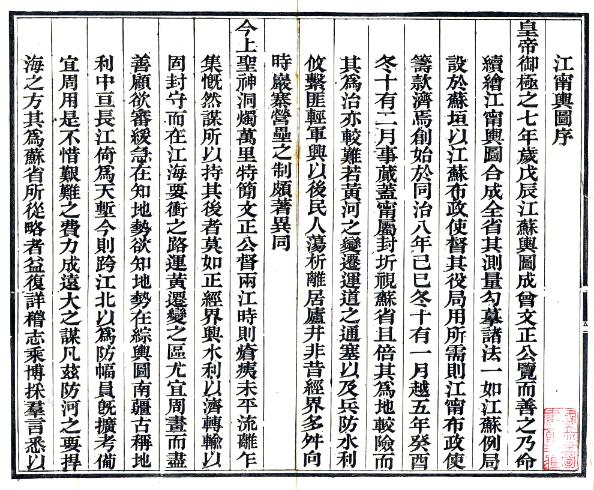 江甯輿圖序
皇帝御極之七年歲戊辰江蘇輿圖成曾文正公覽而善之乃命
續繪江甯輿圖合成全省其測量勾摹諸法一如江蘇例局
設於蘇垣以江蘇布政使督其役局用所需則江甯布政使
籌款濟焉創始於同治八年己巳冬十有一月越五年癸酉
冬十有二月事蕆蓋甯屬封圻視蘇省且倍其為地較險而
其為治亦較難若黃河之變遷運道之通塞以及兵防水利
攸繫匪輕軍興以後民人蕩析離居廬井非昔經界多舛向
時巖塞營壘之制頗著異同
今上聖神洞燭萬里特簡文正公督兩江時則瘡痍未平流離乍
集慨然謀所以持其後者莫如正經界興水利以濟轉輸以
固封守而在江海要衝之路運黃遷變之區尤宜周畫而盡
善顧欲審緩急在知地勢欲知地勢在綜輿圖南疆古稱地
利中亘長江倚為天塹今則跨江北以為防幅員旣擴考覈
宜周用是不惜艱難之費力成遠大之謀凡茲防河之要捍
海之方其為蘇省所從略者益復詳稽志乘博採羣言悉以